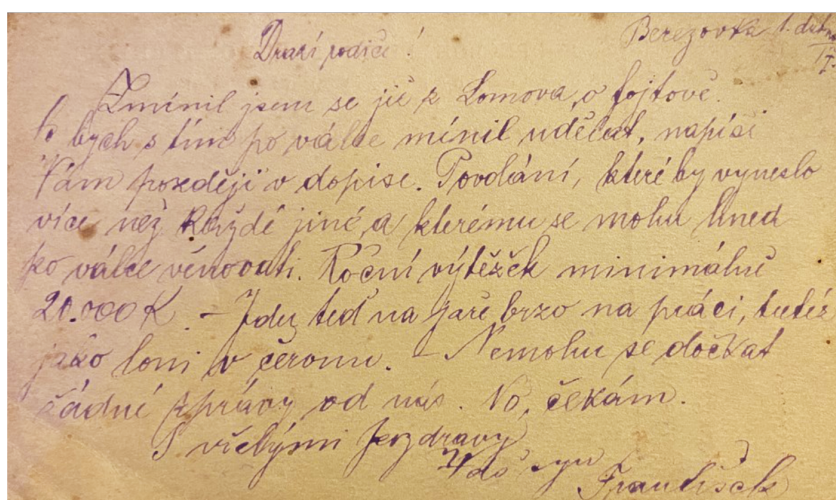 Drazí rodiče!
Berezovka 1. dubna
Zmínil jsem se již z Lomova, o fojtově.
bych s tím po válce mínil udělat, napíši
Vám později v dopise. Povolání, které by vyneslo
více než každé jiné, a kterému se mohu hned
po válce věnovati. Roční výtěžek minimálně
20.000 K. – Jdu teď na jaře brzo na práci, tutéž
jako loni v černu. – Nemohu se dočkat
žádné zprávy od vás. No, čekám.
S vřelými pozdravy
Váš syn
František